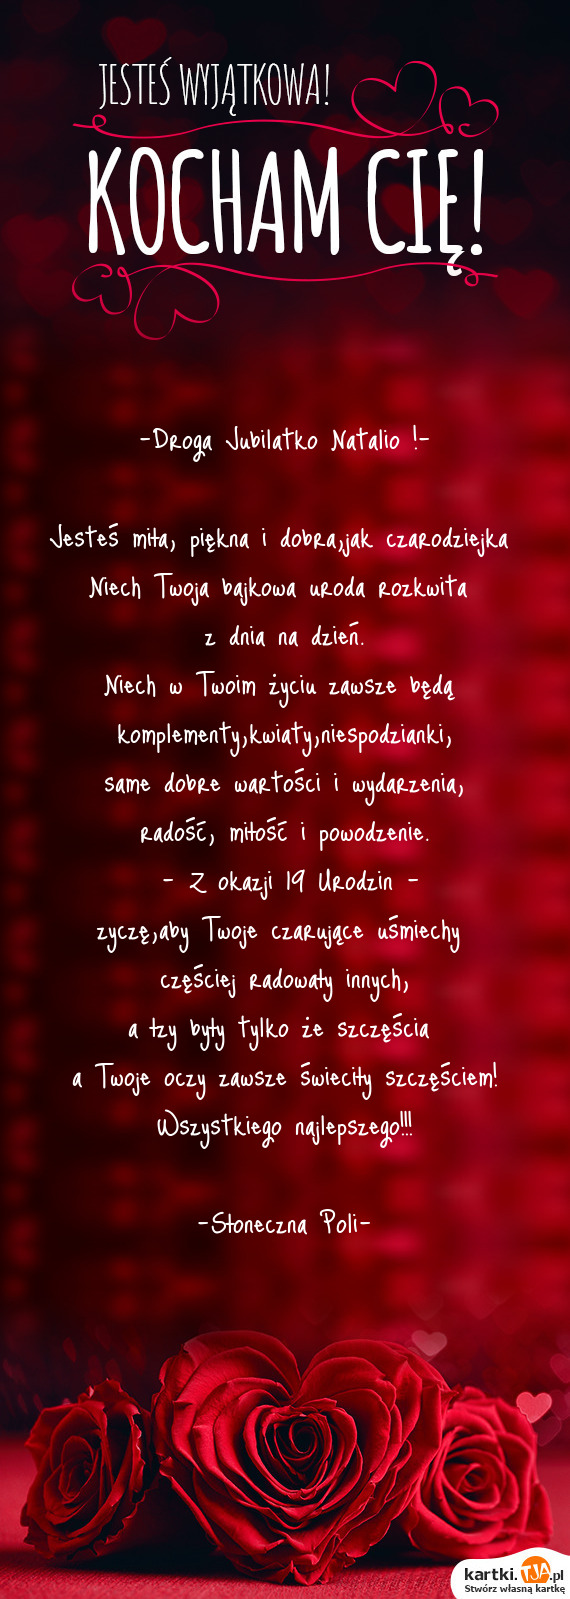 JESTEŚ WYJĄTKOWA!
KOCHAM CIĘ!
-Droga Jubilatko Natalio !-
Jesteś miła, piękna i dobra,jak czarodziejka
Niech Twoja bajkowa uroda rozkwita
z dnia na dzień.
Niech w Twoim życiu zawsze będą
komplementy,kwiaty,niespodzianki,
same dobre wartości i wydarzenia,
radość, miłość i powodzenie.
- Z okazji 19 Urodzin -
zyczę,aby Twoje czarujące uśmiechy
częściej radowały innych,
a łzy były tylko że szczęścia
a Twoje oczy zawsze świeciły szczęściem!
Wszystkiego najlepszego!!!
-Słoneczna Poli-
kartki.TJA.pl
Stwórz własną kartkę